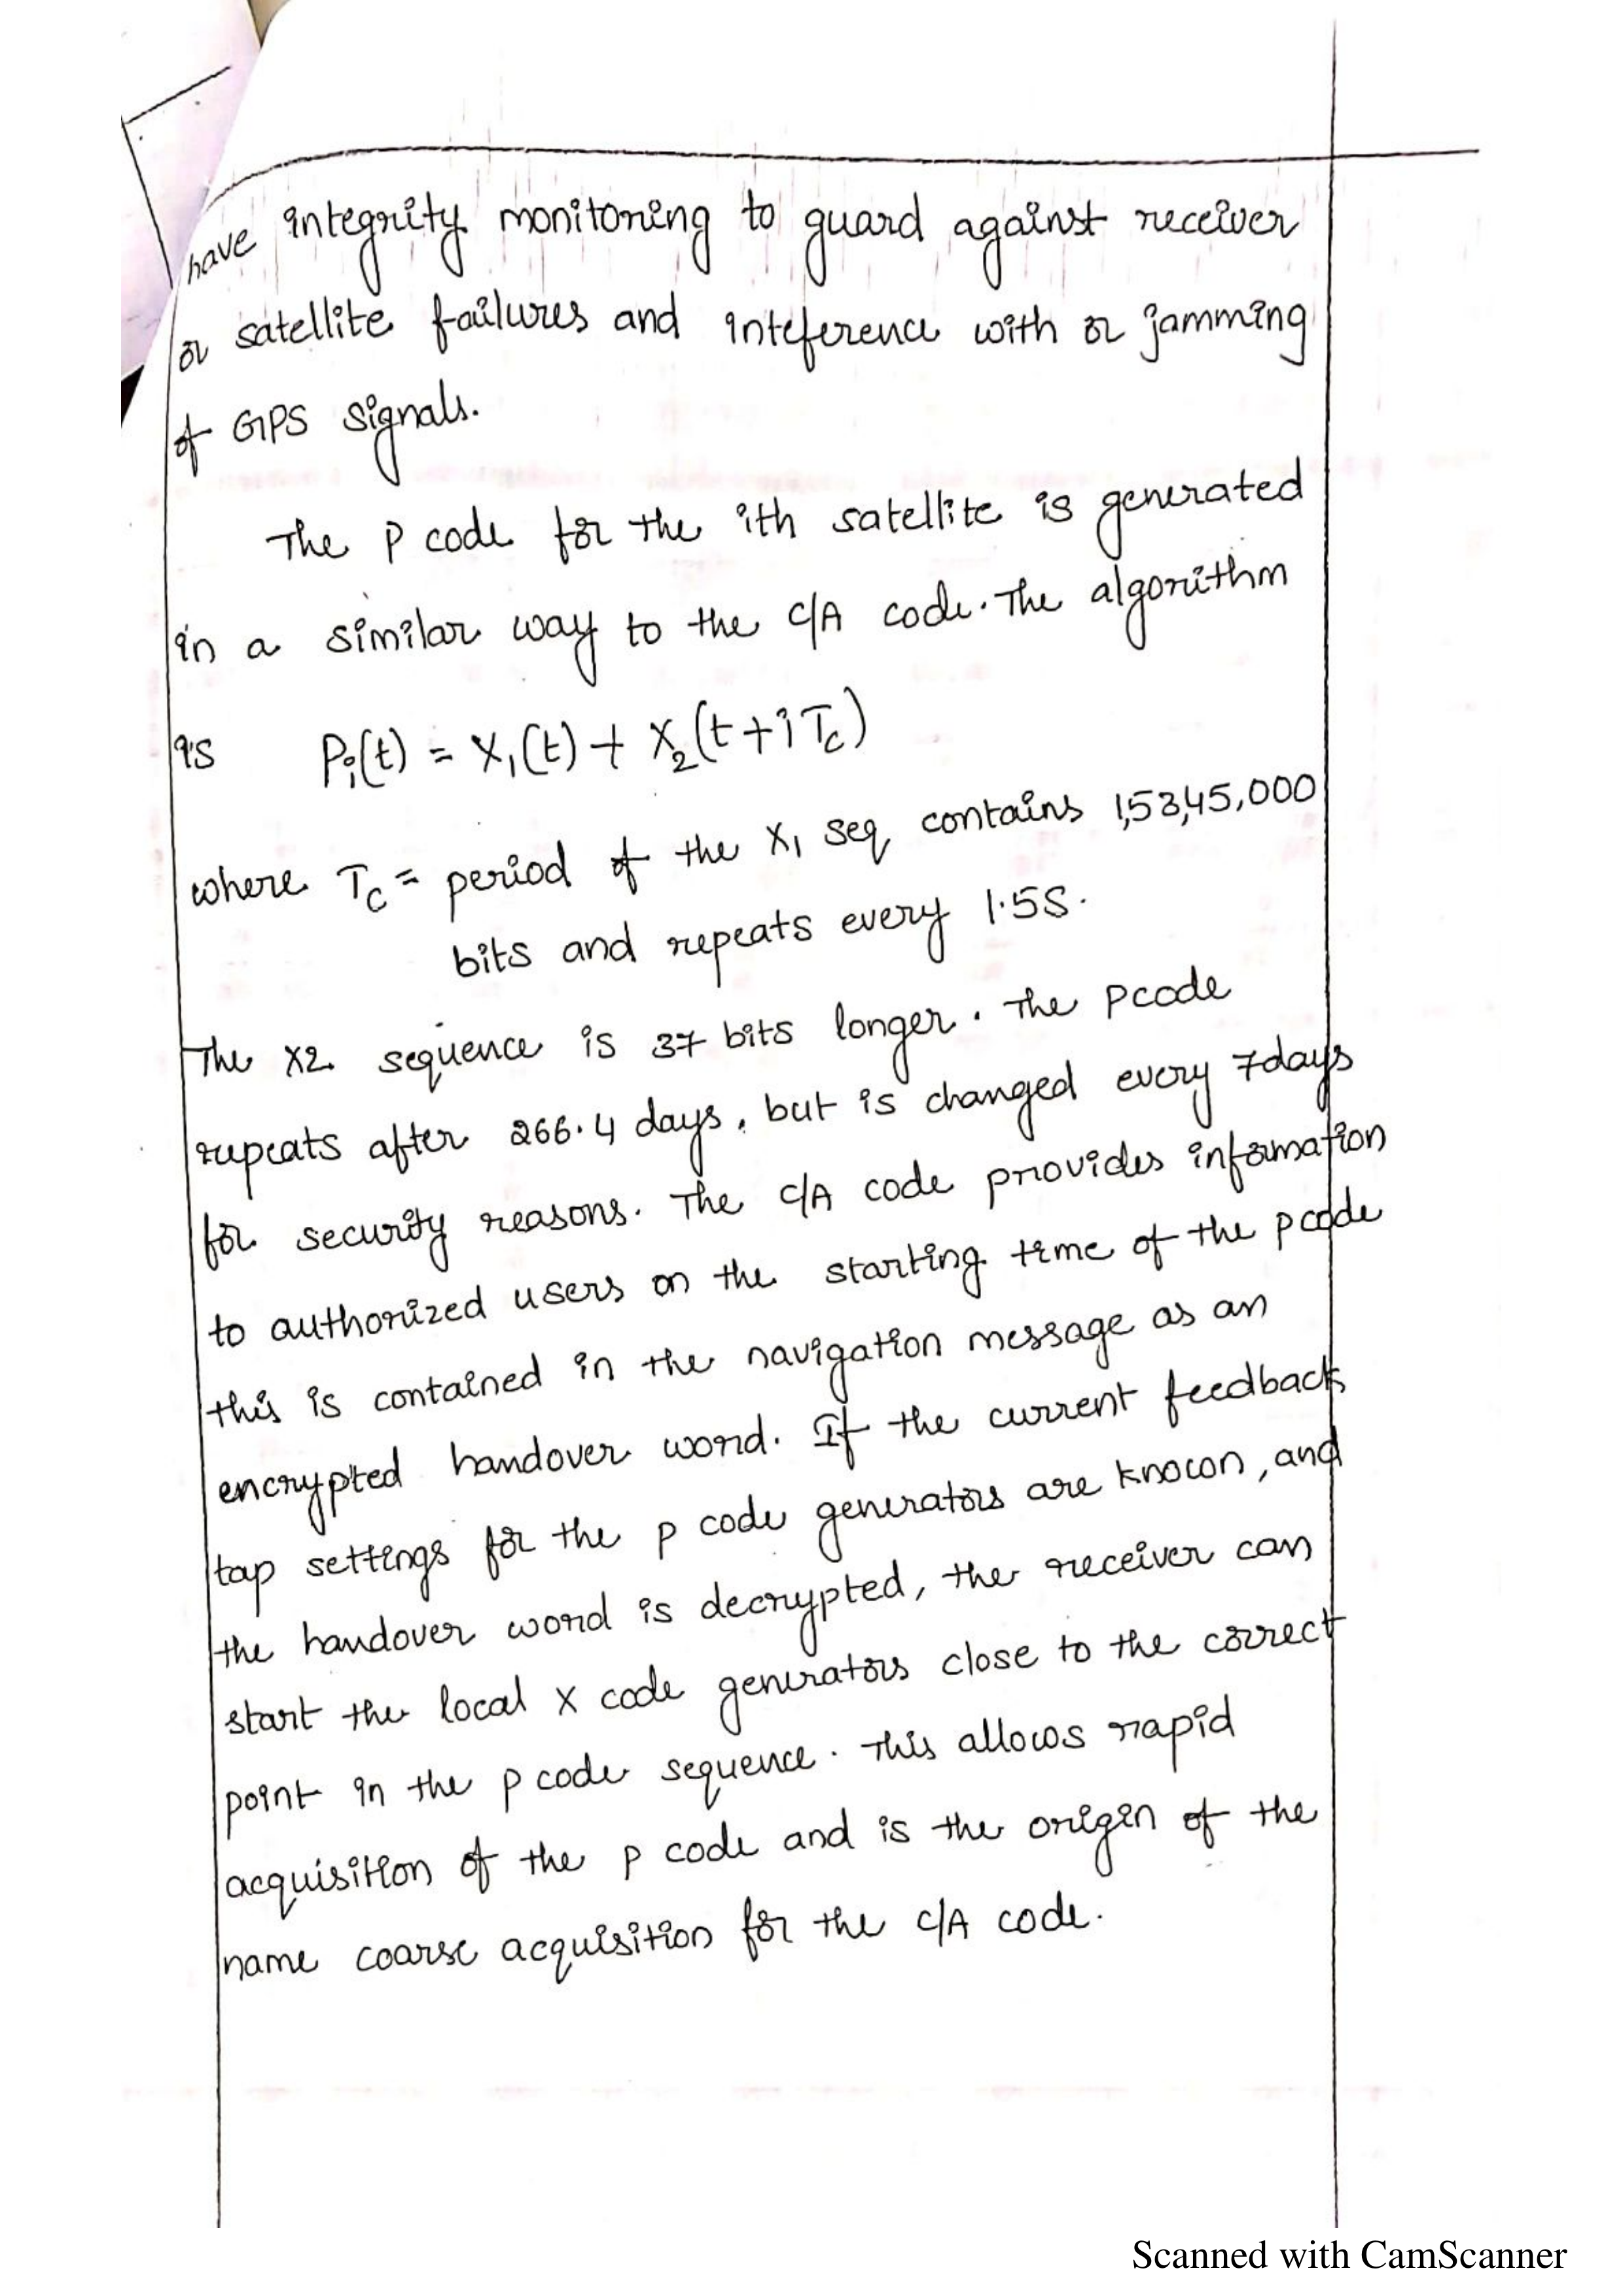 have integrity monitoring to guard against receiver
or satellite failures and inteference with or jamming
of GPS signals.
The P code for the ith satellite is generated
in a similar way to the C/A code. The algorithm
is Pi(t) = X1(t) + X2(t + iTc)
where Tc = period of the X1 seq contains 1,53,45,000
bits and repeats every 1.5S.
The X2 sequence is 37 bits longer. The Pcode
repeats after 266.4 days, but is changed every 7days
for security reasons. The C/A code provides information
to authorized users on the starting time of the pcode
this is contained in the navigation message as an
encrypted handover word. If the current feedback
tap settings for the p code generators are known, and
the handover word is decrypted, the receiver can
start the local x code generators close to the correct
point in the p code sequence. This allows rapid
acquisition of the p code and is the origin of the
name coarse acquisition for the C/A code.
Scanned with CamScanner